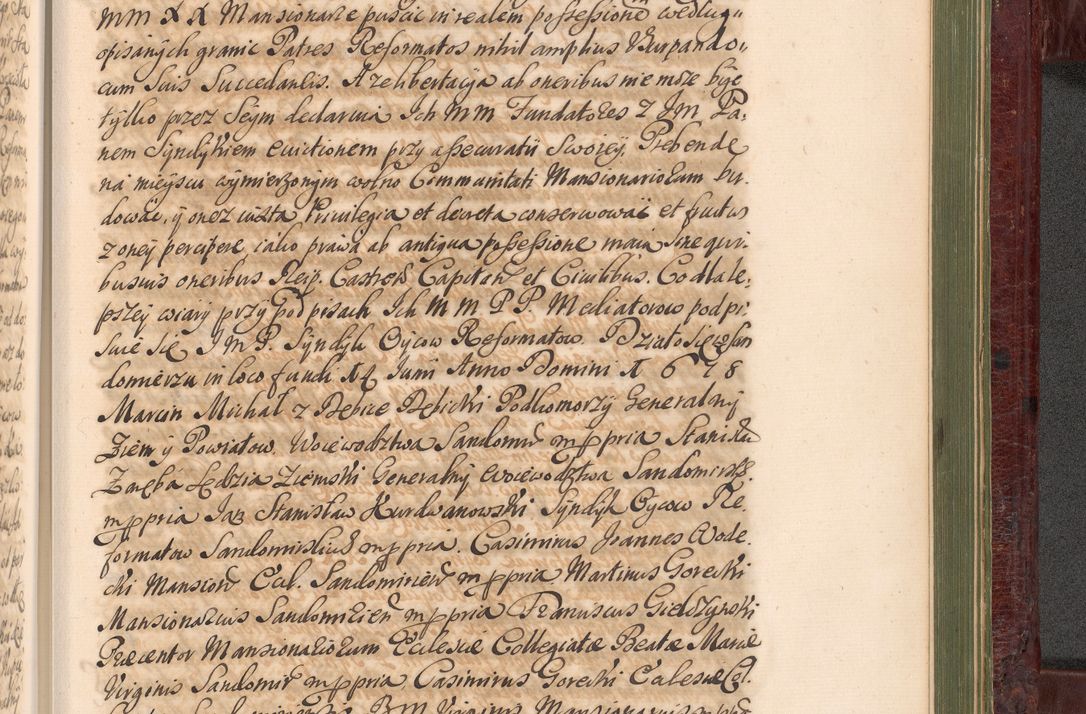 MM XX Mansionarze puścić in realem possessionem według
opisanych granic Patres Reformatos nihil amplius Usurpando
cum Suis Succedaneis. A że libertacyia ab oneribus nie może bydź
tylko przez Seym declaruią Ich MM Fundatores z Jm Pa,
nem Syndykiem evictionem przy assecuratii Swoiey. Prebendę
na mieyscu wymierzonym wolno Communitati Mansionariorum bu,
dować, y onez iuxta Privilegia et decreta conserwować et fructus
z oney percipere iako prawa ab antiqua possessione maią sine quri,
busuis oneribus Reip. Castren Capitan et Ciuilibus. Co dla le,
pszey wiary przy Podpisach Ich MM P P. Mediatorow podpi,
suie się J M P. Syndyk Oycow Reformatow. Działo się w San
domierzu in loco fundi 14 Junii Anno Domini 1678
Marcin Michał z Dębice Dębicki Podkomorzy Generalny
Ziem y Powiatow Woiewodztwa Sandomir mppria Stanisław
Zaręba Sędzia Ziemski Generalny Woiewodztwa Sandomirsk.
mppria Jan Stanisław Kurdwanowski Syndyk Oycow Re,
formatow Sandomirskich mppria. Casimirus Joannes Wode,
cki Mansion Eccl. Sandomirien mppria Martinus Gorecki
Mansionarius Sandomirien mppria Franciscus Gielczynski
Præcentor Mansionariorum Ecclesiæ Collegiatæ Beatæ Mariæ
Virginis Sandomir mppria. Casimirus Gorecki Ecclesiæ Col.
B M Virginis Mansionarius mpp